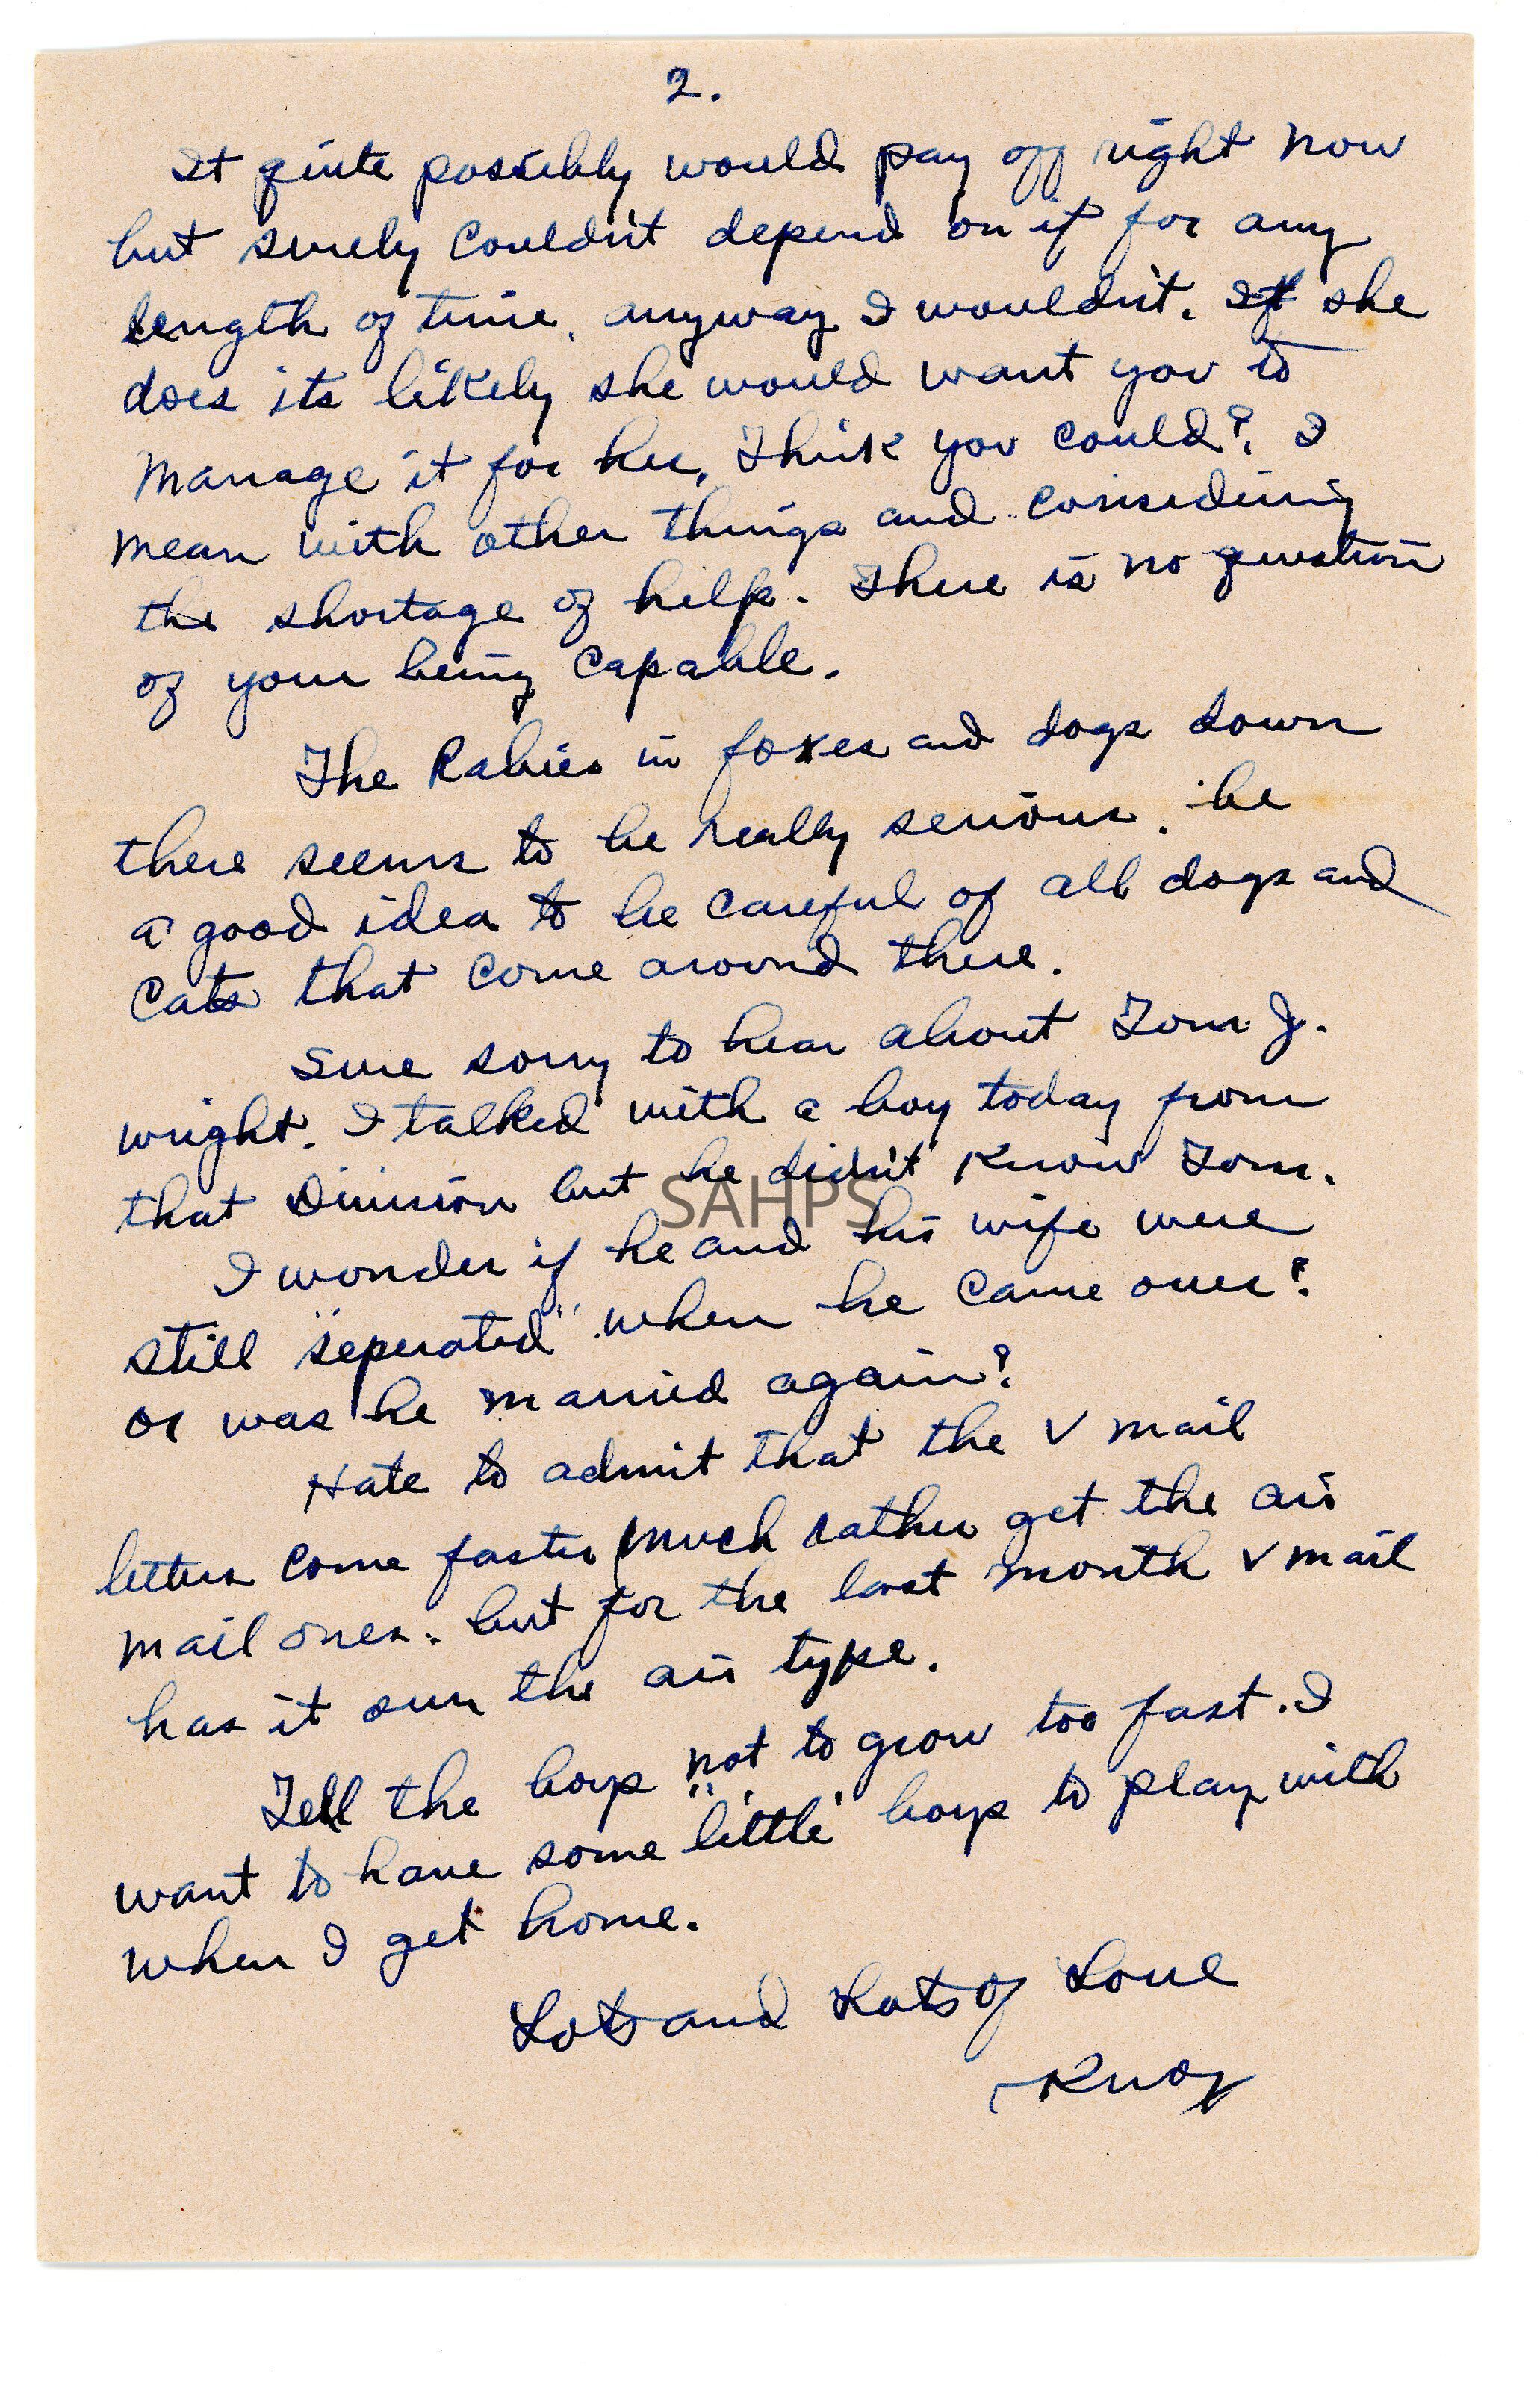 2.
It quite possibly would pay off right now
but surely couldn't depend on it for any
length of time, anyway I wouldn't. If she
does its likely she would want you to
manage it for her, Think you could? I
mean with other things and considering
the shortage of help. There is no question
of your being capable.
The Rabies in foxes and dogs down
there seems to be really serious. be
a good idea to be careful of all dogs and
cats that come around there.
Sure sorry to hear about Tom J.
wright. I talked with a boy today from
that Division but he didn't know Tom.
SAHPS
I wonder if he and his wife were
still "seperated" when he came over?
or was he married again?
Hate to admit that the V mail
letters come faster (much rather get the air
mail ones. but for the last month V mail
has it over the air type.
Tell the boys not to grow too fast. I
want to have some "little" boys to play with
when I get home.
Lots and Lots of Love
Knox